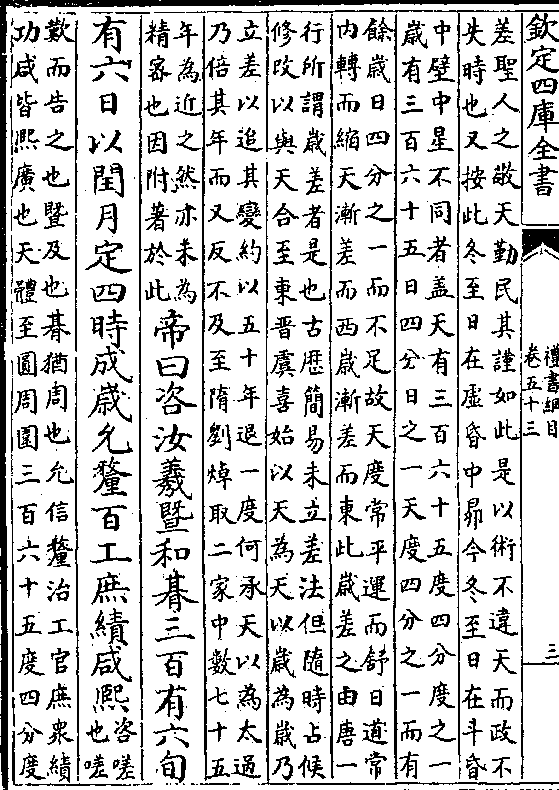 欽定四庫全書
禮書綱目
卷五十三
三
差聖人之敬天勤民其謹如此是以術不違天而政不
失時也又按此冬至日在虛昏中昴今冬至日在斗昏
中壁中星不同者盖天有三百六十五度四分度之一
歲有三百六十五日四分日之一天度四分之一而有
餘歲日四分之一而不足故天度常平運而舒日道常
内轉而縮天漸差而西歲漸差而東此歲差之由唐一
行所謂歲差者是也古歴簡易未立差法但隨時占候
修改以與天合至東晋虞喜始以天為天以歲為歲乃
立差以追其變約以五十年退一度何承天以為太過
乃倍其年而又反不及至隋劉焯取二家中數七十五
年為近之然亦未為
精宻也因附著於此
帝曰咨汝羲暨和朞三百有六旬
有六日以閏月定四時成歲允釐百工庶績咸熙
咨嗟
也嗟
歎而告之也暨及也朞猶周也允信釐治工官庶衆績
功咸皆熙廣也天體至圓周圍三百六十五度四分度